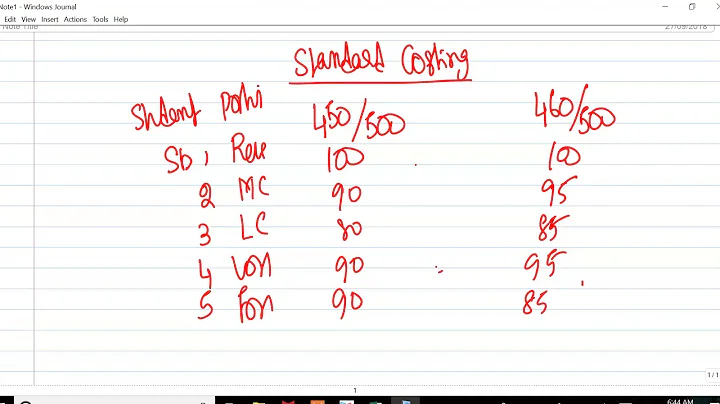 Note1 - Windows Journal
Edit View Insert Actions Tools Help
Note Title 27/09/2018
Standard Costing
Student 450/500 460/500
Sb 1 Rev 100 100
2 MC 90 95
3 LC 80 85
4 VOH 90 95
5 FOH 90 85
1/1
1
6:44 AM